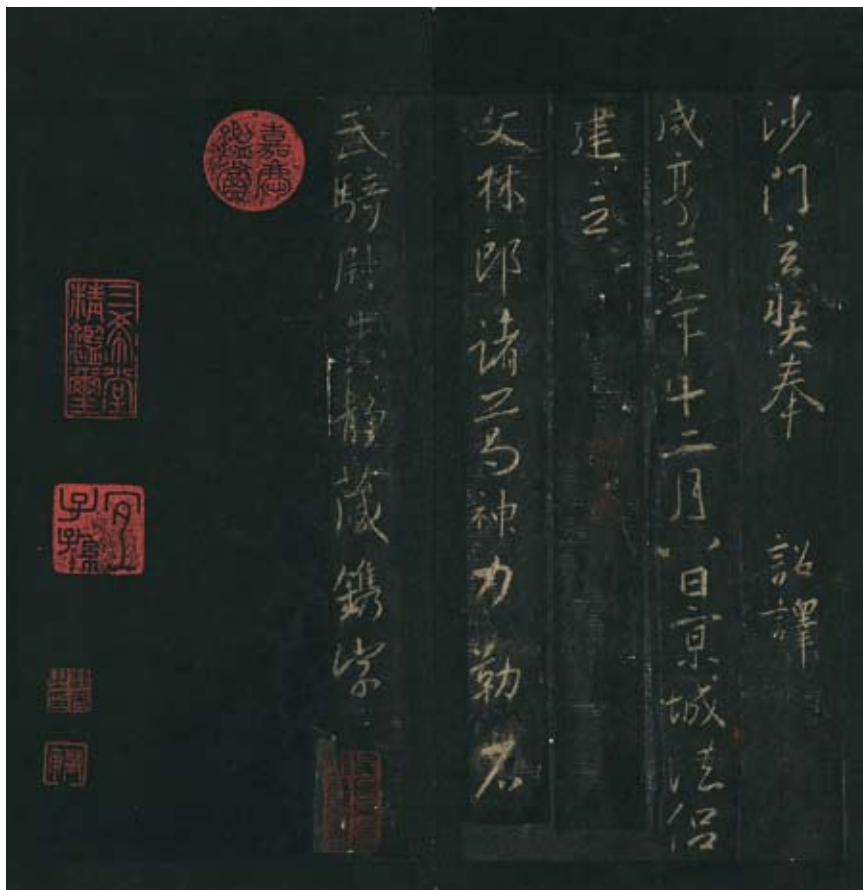 沙門玄奘奉 詔譯
咸亨三年十二月八日京城法侶
建立
文林郎諸葛神力勒石
武騎尉朱静藏鐫字
嘉慶鑑賞
三希堂精鑑璽
宜子孫